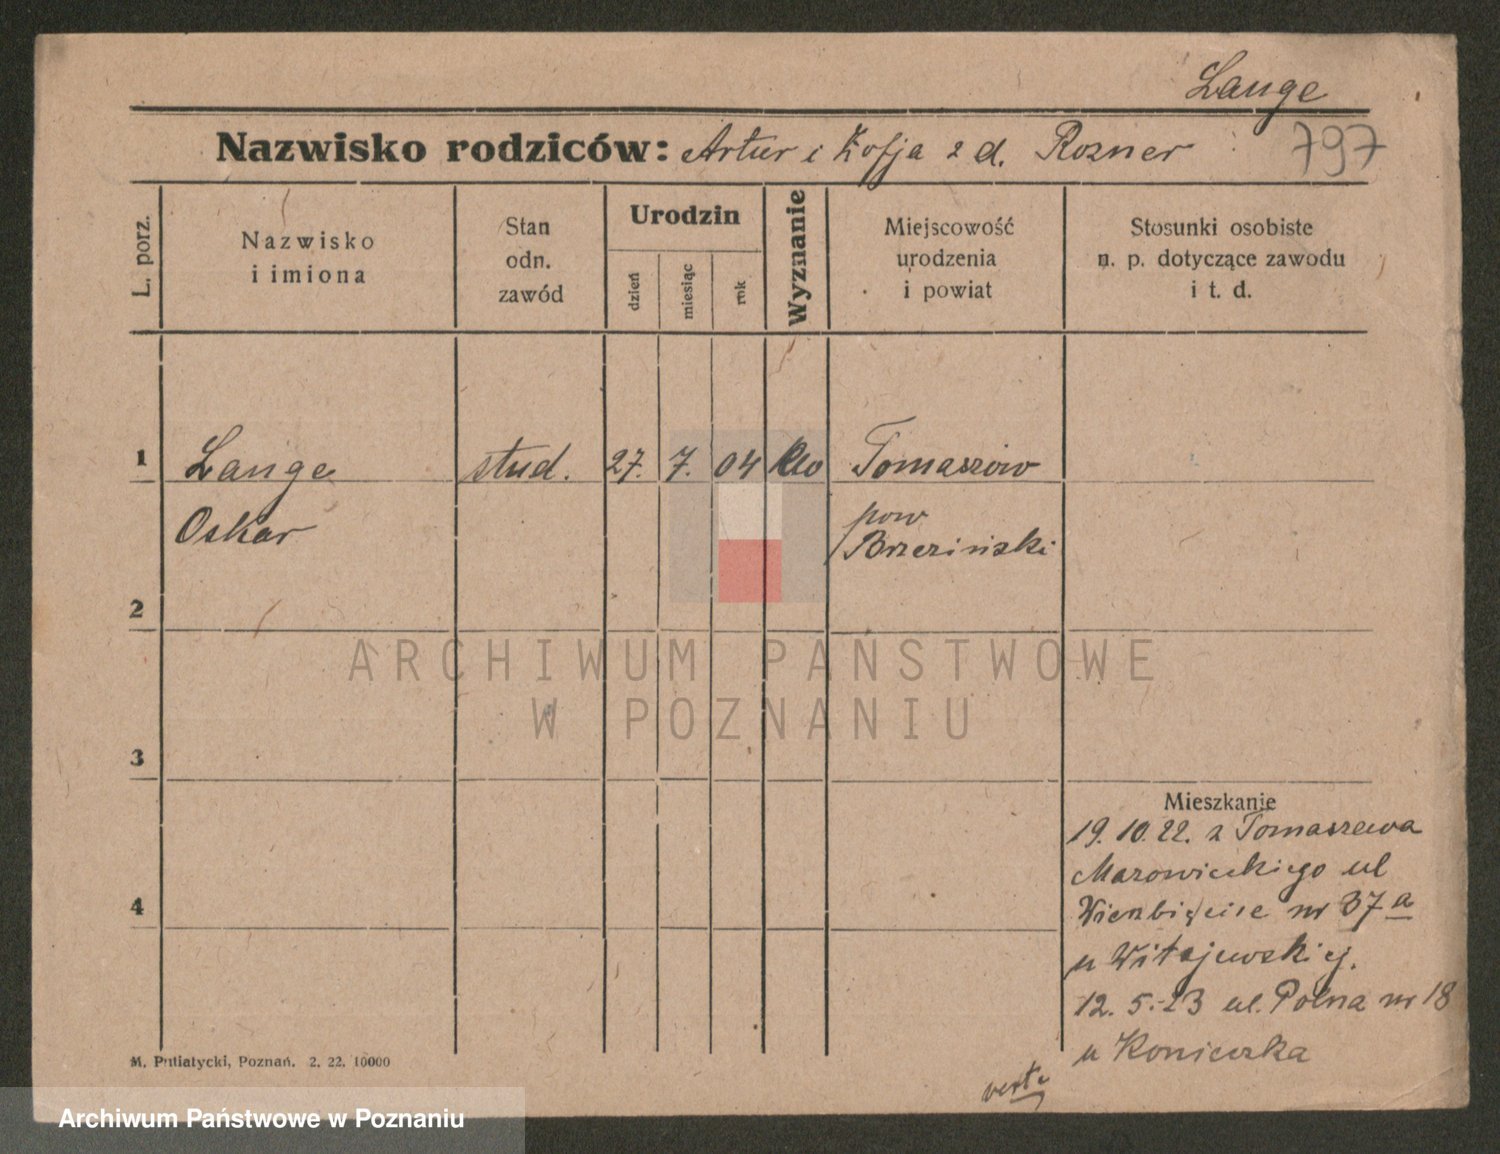 Lange
Nazwisko rodziców: Artur i Zofja z d. Rozner 797
L. porz.
Nazwisko
i imiona
Stan
odn.
zawód
Urodzin
dzień
miesiąc
rok
Wyznanie
Miejscowość
urodzenia
i powiat
Stosunki osobiste
n. p. dotyczące zawodu
i t. d.
1 Lange stud. 27. 7. 04 Tomaszów
Oskar pow
Brzeziński
2
ARCHIWUM PAŃSTWOWE
W POZNANIU
3
Mieszkanie
19. 10. 22. z Tomaszewa
Mazowieckiego ul
nr 37a
u
4
12. 5. 23 ul. Polna nr 18
u Konieczka
M. Putiatycki, Poznań. 2. 22. 10000
verte
Archiwum Państwowe w Poznaniu